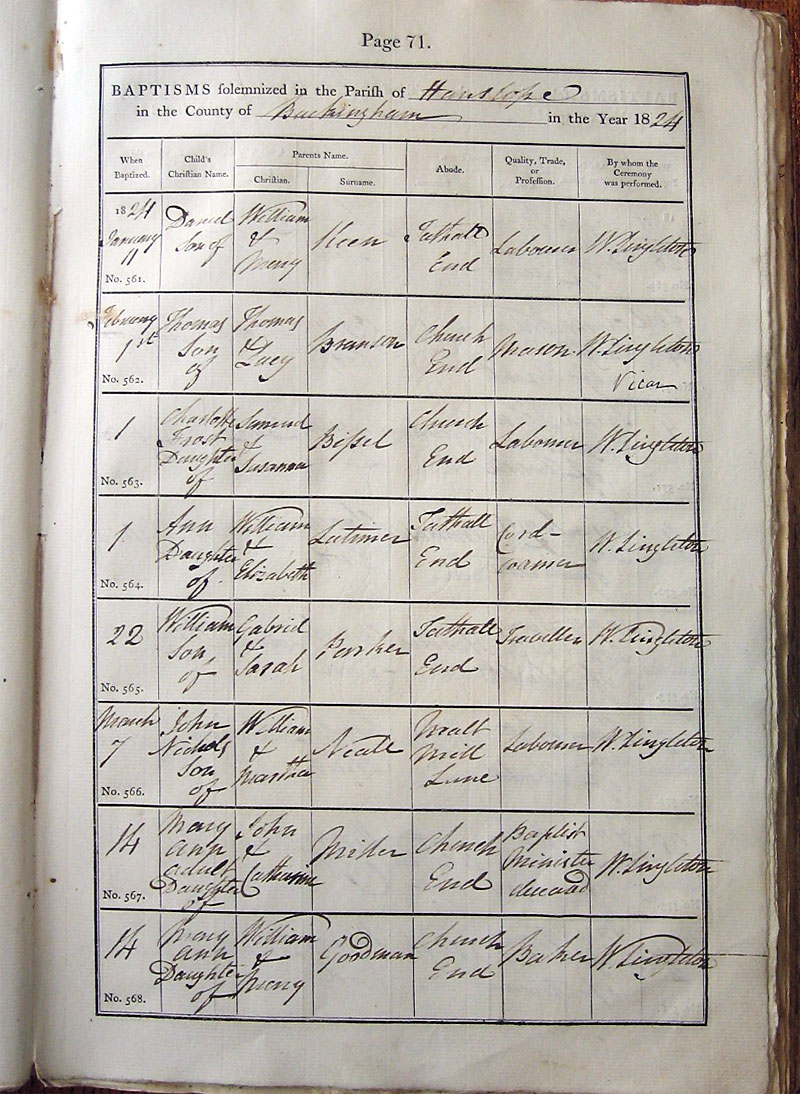 Page 71.
BAPTISMS solemnized in the Parish of Hanslope
in the County of Buckingham in the Year 1824
When Baptized.
Child's Christian Name.
Parents Name.
Christian.
Surname.
Abode.
Quality, Trade, or Profession.
By whom the Ceremony was performed.
1824
January
11
No. 561.
Daniel
Son of
William
&
Mary
Keen
Tathall
End
Labourer
W. Singleton
February
1st
No. 562.
Thomas
Son
of
Thomas
&
Lucy
Branson
Church
End
Mason
W. Singleton
Vicar
1
No. 563.
Charlotte
Frost
Daughter
of
Samuel
&
Susanna
Bissel
Church
End
Labourer
W. Singleton
1
No. 564.
Ann
Daughter
of
William
&
Elizabeth
Latimer
Tathall
End
Cord-
wainer
W. Singleton
22
No. 565.
William
Son
of
Gabriel
&
Sarah
Parker
Tathall
End
Traveller
W. Singleton
March
7
No. 566.
John
Nichols
Son
of
William
&
Martha
Neall
Mill
Lane
Labourer
W. Singleton
14
No. 567.
Mary
Ann
adult
Daughter
of
John
&
Catharine
Miller
Church
End
Baptist
Minister
deceased
W. Singleton
14
No. 568.
Mary
Ann
Daughter
of
William
&
Mary
Goodman
Church
End
Baker
W. Singleton